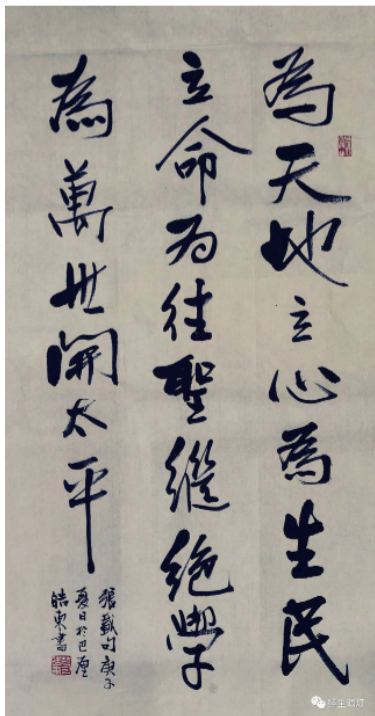 為天地立心為生民
立命为往聖繼絕學
為萬世開太平
張載句庚子
夏日於巴厘
皓東書